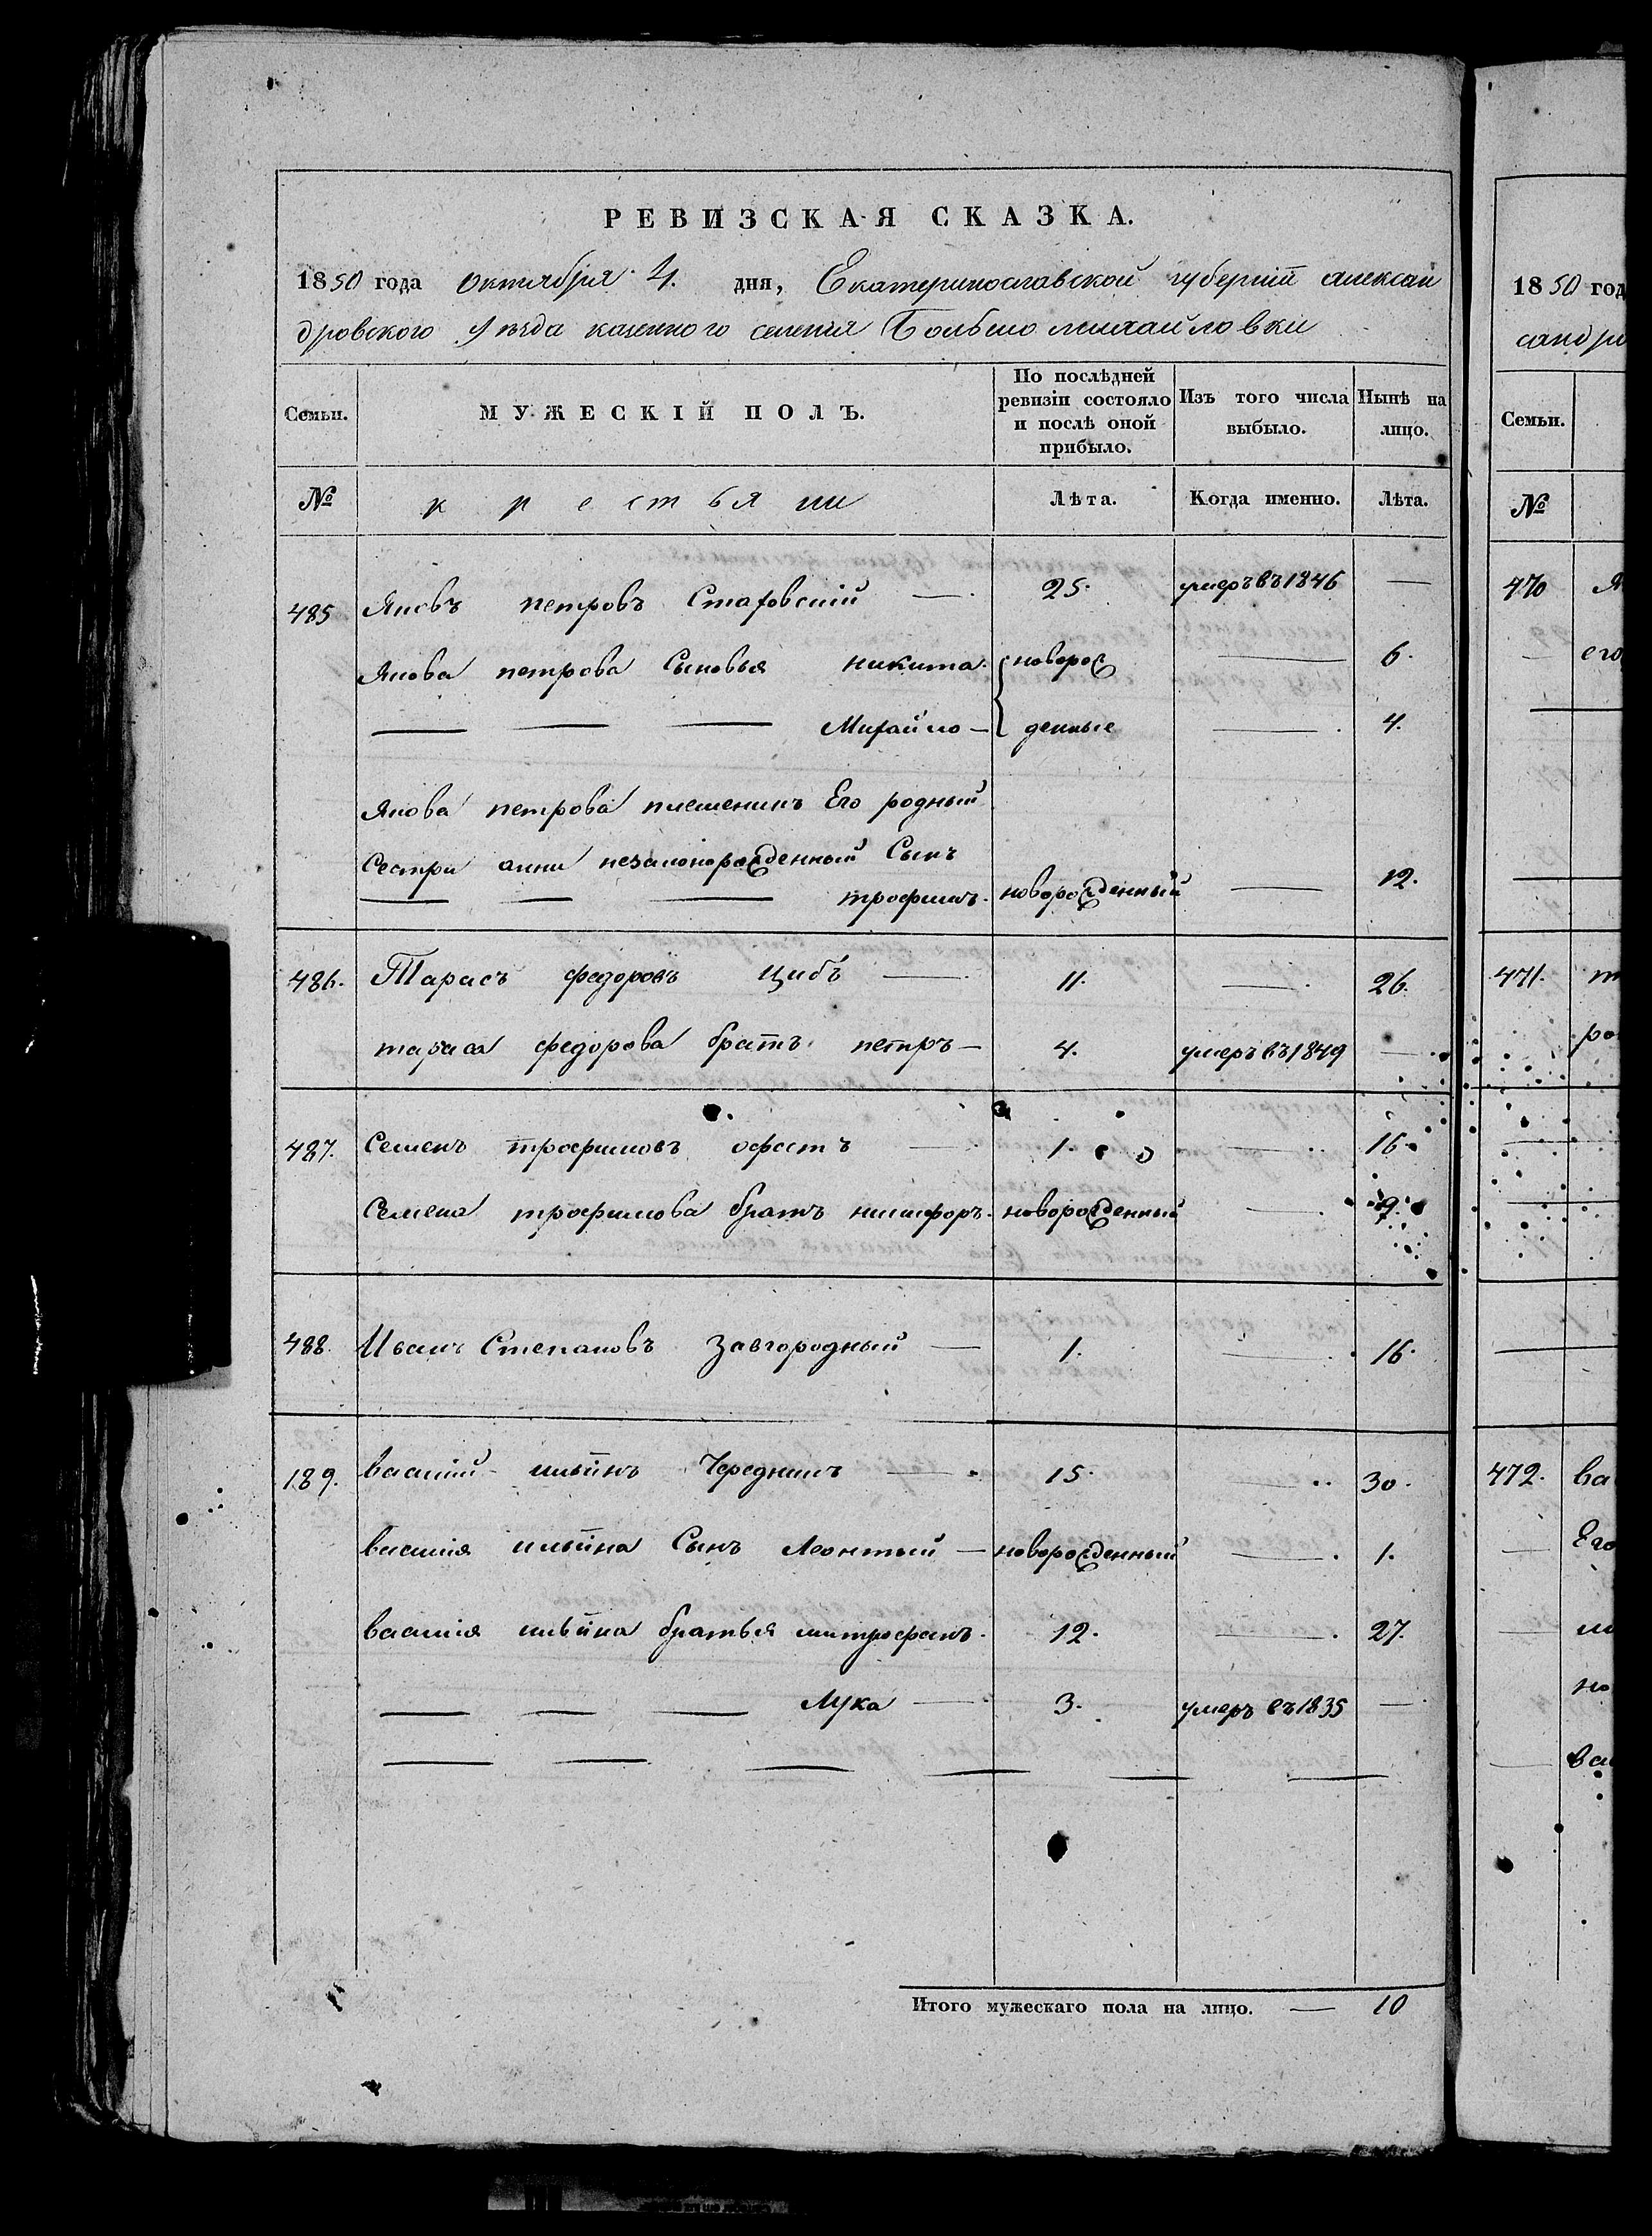 РЕВИЗСКАЯ СКАЗКА.
1850 года октября 4. дня, Екатеринославской губерніи алексан
дровского уѣзда казенного селенія Большомихайловки
Семьи. МУЖЕСКІЙ ПОЛЪ. По послѣдней ревизіи состояло и послѣ оной прибыло. Изъ того числа выбыло. Нынѣ на лицо.
№ крестьяни Лѣта. Когда именно. Лѣта.
485 Яковъ петровъ — 25. умеръ въ 1846 —
Якова петрова Сыновья никита новорож — 6.
— — — Михайло — денные — 4.
Якова петрова племеникъ Его родный
Сестри анни незаконорожденный Сынъ
— — — трофимъ новорожденный — 12.
486. Тарасъ федоровъ Цибъ — 11. — 26.
тараса федорова братъ петръ — 4. умеръ въ 1849 —
487. Семенъ трофимовъ — 1. — 16.
Семена трофимова братъ никифоръ новорожденный —
488. Иванъ Степановъ Завгородный — 1. — 16.
189. василій ильинъ Чередникъ — 15. — 30.
василія ильина Сынъ Леонтый — новорожденный — 1.
василія ильина братья митрофанъ 12. — 27.
— — — Лука — 3. умеръ въ 1835 —
Итого мужескаго пола на лицо. — 10
1850 год
Семьи.
№
470
его
471.
472. ва
Его
но